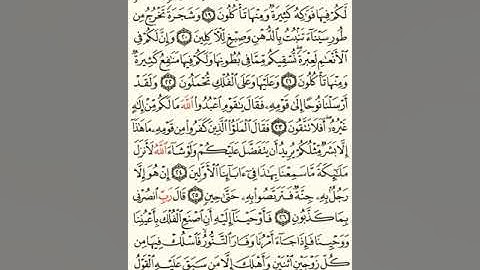 لَكُمْ فِيهَا فَوَاكِهُ كَثِيرَةٌ وَمِنْهَا تَأْكُلُونَ ۝١٩ وَشَجَرَةً تَخْرُجُ مِن
طُورِ سَيْنَاءَ تَنۢبُتُ بِالدُّهْنِ وَصِبْغٍ لِّلْآكِلِينَ ۝٢٠ وَإِنَّ لَكُمْ فِي
الْأَنْعَامِ لَعِبْرَةً نُّسْقِيكُم مِّمَّا فِي بُطُونِهَا وَلَكُمْ فِيهَا مَنَافِعُ كَثِيرَةٌ
وَمِنْهَا تَأْكُلُونَ ۝٢١ وَعَلَيْهَا وَعَلَى الْفُلْكِ تُحْمَلُونَ ۝٢٢ وَلَقَدْ
أَرْسَلْنَا نُوحًا إِلَىٰ قَوْمِهِ فَقَالَ يَاقَوْمِ اعْبُدُوا اللَّهَ مَا لَكُم مِّنْ إِلَٰهٍ
غَيْرُهُ أَفَلَا تَتَّقُونَ ۝٢٣ فَقَالَ الْمَلَؤُا الَّذِينَ كَفَرُوا مِن قَوْمِهِ مَا هَٰذَا
إِلَّا بَشَرٌ مِّثْلُكُمْ يُرِيدُ أَن يَتَفَضَّلَ عَلَيْكُمْ وَلَوْ شَاءَ اللَّهُ لَأَنزَلَ
مَلَائِكَةً مَّا سَمِعْنَا بِهَٰذَا فِي آبَائِنَا الْأَوَّلِينَ ۝٢٤ إِنْ هُوَ إِلَّا
رَجُلٌ بِهِ جِنَّةٌ فَتَرَبَّصُوا بِهِ حَتَّىٰ حِينٍ ۝٢٥ قَالَ رَبِّ انصُرْنِي
بِمَا كَذَّبُونِ ۝٢٦ فَأَوْحَيْنَا إِلَيْهِ أَنِ اصْنَعِ الْفُلْكَ بِأَعْيُنِنَا
وَوَحْيِنَا فَإِذَا جَاءَ أَمْرُنَا وَفَارَ التَّنُّورُ فَاسْلُكْ فِيهَا مِن
كُلٍّ زَوْجَيْنِ اثْنَيْنِ وَأَهْلَكَ إِلَّا مَن سَبَقَ عَلَيْهِ الْقَوْلُ